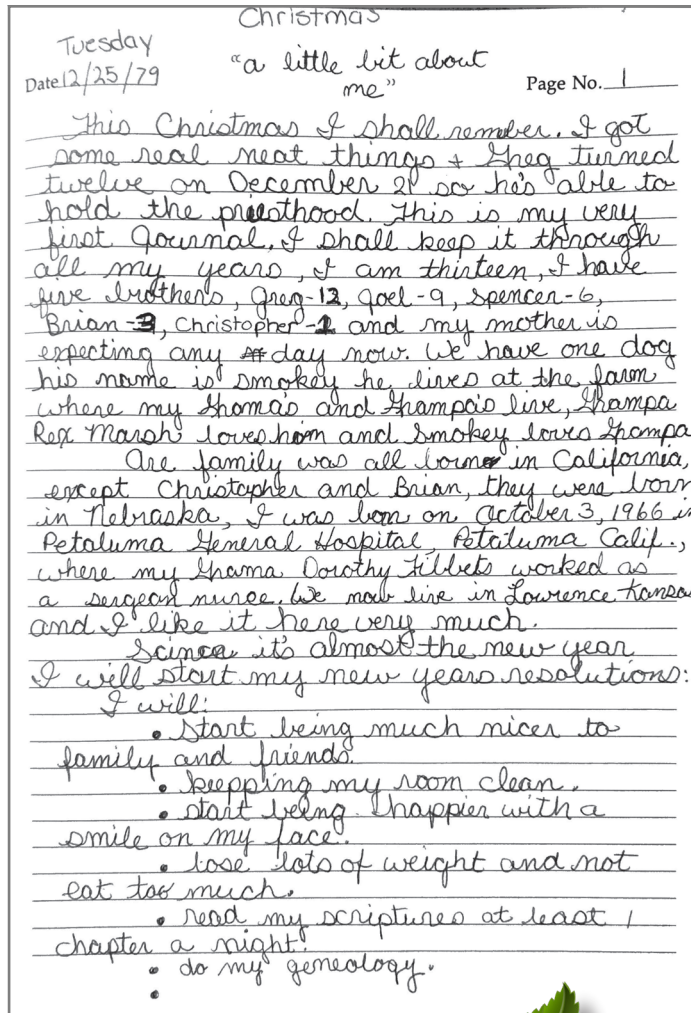 Christmas
Tuesday
Date 12/25/79
"a little bit about
me"
Page No. 1
This Christmas I shall remember. I got
some real neat things + Greg turned
twelve on December 21 so he's able to
hold the priesthood. This is my very
first Journal, I shall keep it through
all my years, I am thirteen, I have
five brothers, Greg-12, Joel-9, Spencer-6,
Brian-3, Christopher-1 and my mother is
expecting any day now. We have one dog
his name is Smokey he, lives at the farm
where my Grama's and Grampa's live, Grampa
Rex Marsh loves him and Smokey loves Grampa
Are family was all born in California,
except Christopher and Brian, they were born
in Nebraska, I was born on October 3, 1966 in
Petaluma General Hospital, Petaluma Calif.,
where my Grama Dorothy Tibbets worked as
a sergean nurce. We now live in Lawrence Kansas
and I like it here very much.
Scince it's almost the new year
I will start my new years resolutions:
I will:
• start being much nicer to
family and friends.
• keepping my room clean.
• start being happier with a
smile on my face.
• lose lots of weight and not
eat too much.
• read my scriptures at least 1
chapter a night.
• do my geneology.
•